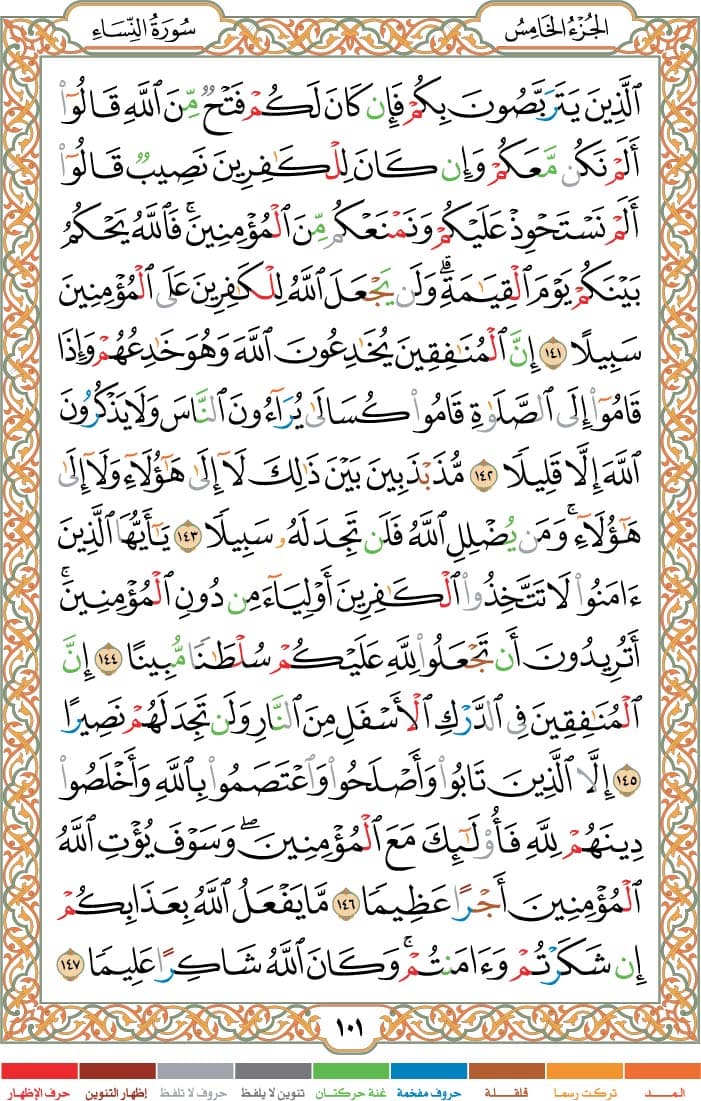 الجزء الخامس
سورة النساء
ٱلَّذِينَ يَتَرَبَّصُونَ بِكُمۡ فَإِن كَانَ لَكُمۡ فَتۡحٞ مِّنَ ٱللَّهِ قَالُوٓاْ
أَلَمۡ نَكُن مَّعَكُمۡ وَإِن كَانَ لِلۡكَٰفِرِينَ نَصِيبٞ قَالُوٓاْ
أَلَمۡ نَسۡتَحۡوِذۡ عَلَيۡكُمۡ وَنَمۡنَعۡكُم مِّنَ ٱلۡمُؤۡمِنِينَۚ فَٱللَّهُ يَحۡكُمُ
بَيۡنَكُمۡ يَوۡمَ ٱلۡقِيَٰمَةِۗ وَلَن يَجۡعَلَ ٱللَّهُ لِلۡكَٰفِرِينَ عَلَى ٱلۡمُؤۡمِنِينَ
سَبِيلًا ١٤١ إِنَّ ٱلۡمُنَٰفِقِينَ يُخَٰدِعُونَ ٱللَّهَ وَهُوَ خَٰدِعُهُمۡ وَإِذَا
قَامُوٓاْ إِلَى ٱلصَّلَوٰةِ قَامُواْ كُسَالَىٰ يُرَآءُونَ ٱلنَّاسَ وَلَا يَذۡكُرُونَ
ٱللَّهَ إِلَّا قَلِيلٗا ١٤٢ مُّذَبۡذَبِينَ بَيۡنَ ذَٰلِكَ لَآ إِلَىٰ هَٰٓؤُلَآءِ وَلَآ إِلَىٰ
هَٰٓؤُلَآءِۚ وَمَن يُضۡلِلِ ٱللَّهُ فَلَن تَجِدَ لَهُۥ سَبِيلٗا ١٤٣ يَٰٓأَيُّهَا ٱلَّذِينَ
ءَامَنُواْ لَا تَتَّخِذُواْ ٱلۡكَٰفِرِينَ أَوۡلِيَآءَ مِن دُونِ ٱلۡمُؤۡمِنِينَۚ
أَتُرِيدُونَ أَن تَجۡعَلُواْ لِلَّهِ عَلَيۡكُمۡ سُلۡطَٰنٗا مُّبِينًا ١٤٤ إِنَّ
ٱلۡمُنَٰفِقِينَ فِي ٱلدَّرۡكِ ٱلۡأَسۡفَلِ مِنَ ٱلنَّارِ وَلَن تَجِدَ لَهُمۡ نَصِيرًا
١٤٥ إِلَّا ٱلَّذِينَ تَابُواْ وَأَصۡلَحُواْ وَٱعۡتَصَمُواْ بِٱللَّهِ وَأَخۡلَصُواْ
دِينَهُمۡ لِلَّهِ فَأُوْلَٰٓئِكَ مَعَ ٱلۡمُؤۡمِنِينَۖ وَسَوۡفَ يُؤۡتِ ٱللَّهُ
ٱلۡمُؤۡمِنِينَ أَجۡرًا عَظِيمٗا ١٤٦ مَّا يَفۡعَلُ ٱللَّهُ بِعَذَابِكُمۡ
إِن شَكَرۡتُمۡ وَءَامَنتُمۡۚ وَكَانَ ٱللَّهُ شَاكِرًا عَلِيمٗا ١٤٧
١٠١
المــد تركت رسما قلقلة حروف مفخمة غنة حركتان تنوين لا يلفظ حروف لا تلفظ إظهار التنوين حرف الإظهار